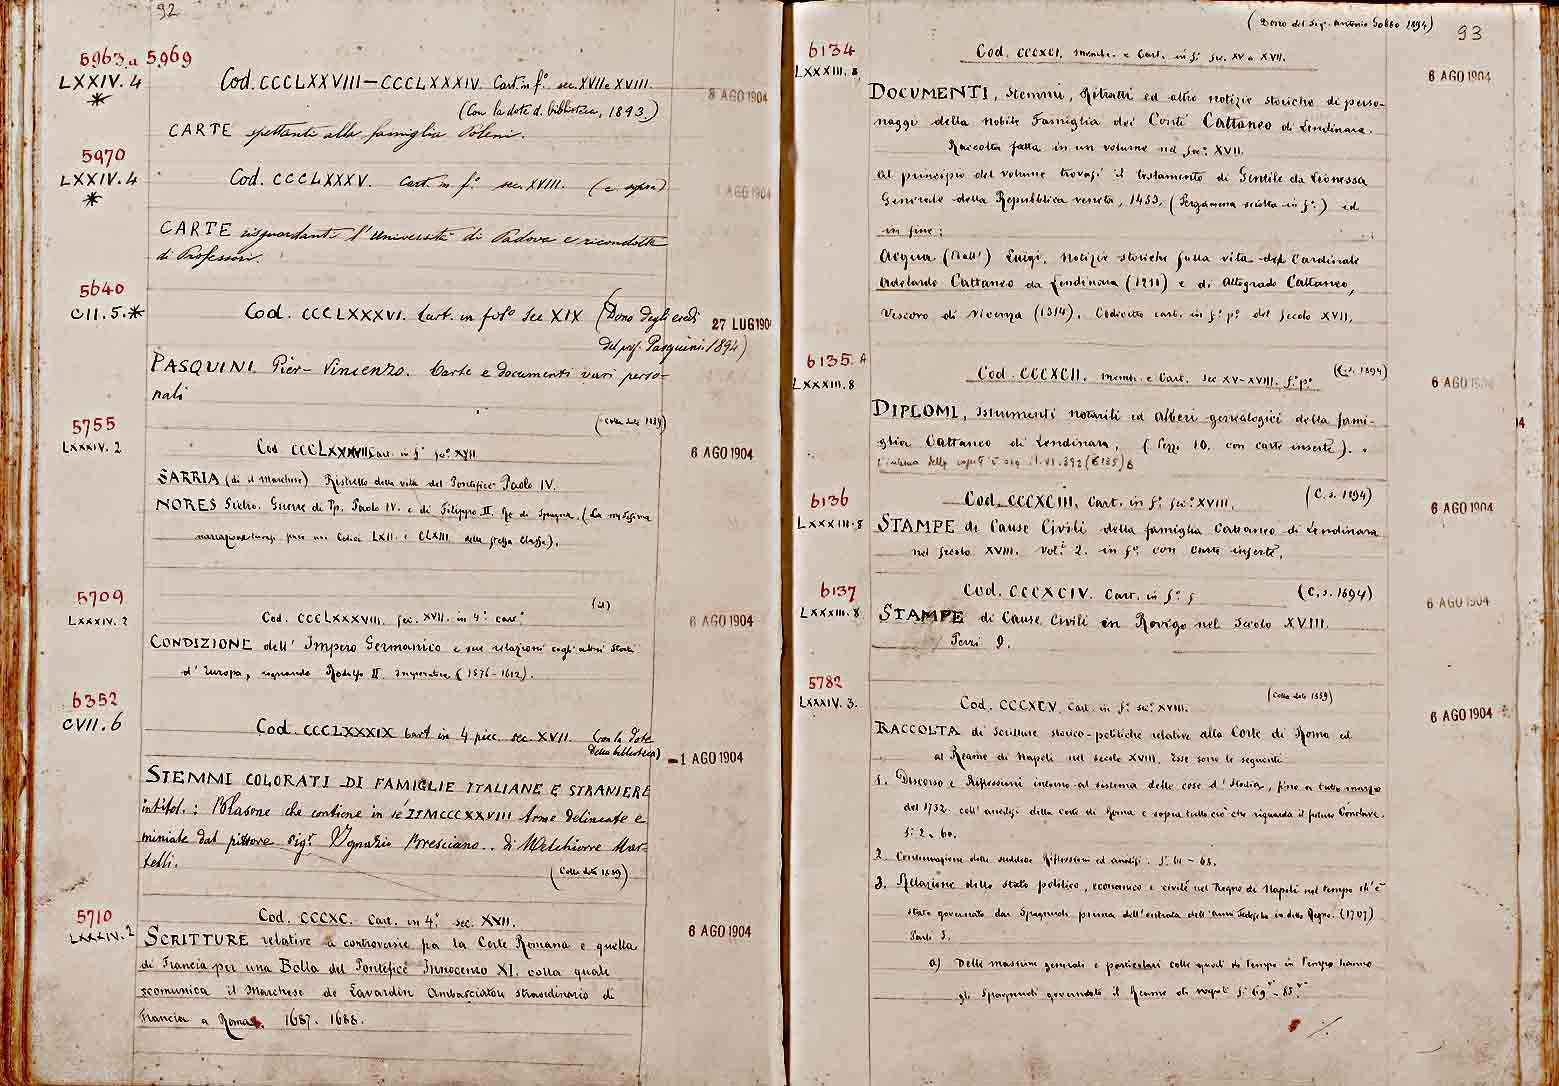 92
5963 a 5969
LXXIV. 4
*
Cod. CCCLXXVIII—CCCLXXXIV. Cart. in f.° sec. XVII e XVIII.
8 AGO 1904
(Con la dote d. biblioteca, 1893.)
CARTE spettanti alla famiglia Poleni.
5970
LXXIV. 4
*
Cod. CCCLXXXV. Cart. in f.° sec. XVIII. (c. sopra)
AGO 1904
CARTE risguardanti l'Università di Padova e ricondotte
di Professori.
5640
CII. 5. *
Cod. CCCLXXXVI. Cart. in fol° sec XIX (Dono degli eredi
del prof. Pasquini. 1894)
27 LUG 190
PASQUINI Pier-Vincenzo. Carte e documenti vari perso-
nali
5755
LXXXIV. 2
Cod. CCCLXXXVII Cart. in f.° sec.° XVII.
6 AGO 1904
SARRIA (di il Marchese) Ristretto della vita del Pontefice Paolo IV.
NORES Pietro. Guerre di Pp. Paolo IV. e di Filippo II. Re di Spagna. (La medesima
narrazione Codici LXII. e CLXIII. della stessa Classe).
5709
LXXXIV. 2
Cod. CCCLXXXVIII. sec. XVII. in 4.° cart.°
(id)
6 AGO 1904
CONDIZIONE dell' Impero Germanico e sue relazioni cogli altri Stati
d' Europa, regnando Rodolfo II. Imperatore (1576-1612).
6352
CVII. 6
Cod. CCCLXXXIX Cart in 4 picc. sec. XVII. (con la dote
della biblioteca)
-1 AGO 1904
STEMMI COLORATI DI FAMIGLIE ITALIANE E STRANIERE
intitol. : Blasone che contiene in sé IIMCCCXXVIII Arme delineate e
miniate dal pittore Sig.r Ignazio Bresciano.. di Melchiorre Mar-
telli.
5710
LXXXIV. 2
Cod. CCCXC. Cart. in 4.° sec. XVII.
6 AGO 1904
SCRITTURE relative a controversie fra la Corte Romana e quella
di Francia per una Bolla del Pontefice Innocenzo XI. colla quale
scomunica il Marchese de Lavardin Ambasciatore straordinario di
Francia a Roma. 1687. 1688.
(Dono del Sig. Antonio Gobbo 1894)
93
6134
LXXXIII. 8
Cod. CCCXCI. memb. e Cart. in f.° sec. XV a XVII.
6 AGO 1904
DOCUMENTI, Stemmi, Ritratti ed altre notizie storiche di perso-
naggi della nobile Famiglia dei Conti Cattaneo di Lendinara.
Raccolta fatta in un volume nel sec.° XVII.
Al principio del volume trovasi il testamento di Gentile da Lionessa
Generale della Repubblica veneta, 1453. (Pergamena sciolta in f.°) ed
in fine:
Acqua (Dall') Luigi. Notizie storiche sulla vita del Cardinale
Adelardo Cattaneo da Lendinara (1211) e di Altogrado Cattaneo,
Vescovo di Vicenza (1314). Codicetto cart. in f.° p.° del Secolo XVII.
6135. A
LXXXIII. 8
Cod. CCCXCII. memb. e Cart. sec XV-XVIII. f.° p.°
(C. s. 1894)
6 AGO 1904
DIPLOMI, Istrumenti notarili ed Alberi genealogici della fami-
glia Cattaneo di Lendinara, (Pezzi 10. con carte inserte).
6136
LXXXIII. 8
Cod. CCCXCIII. Cart. in f.° sec.° XVIII.
(C. s. 1894)
6 AGO 1904
STAMPE di Cause Civili della famiglia Cattaneo di Lendinara
nel secolo XVIII. Vol.i 2. in f.° con Carte inserte.
6137
LXXXIII. 8
Cod. CCCXCIV. Cart. in f.°
(C. s. 1894)
6 AGO 1904
STAMPE di Cause Civili in Rovigo nel Secolo XVIII.
Pezzi 9.
5782
LXXXIV. 3.
Cod. CCCXCV. Cart. in f.° sec.° XVIII.
6 AGO 1904
RACCOLTA di Scritture storico-politiche relative alla Corte di Roma ed
al Reame di Napoli nel secolo XVIII. Esse sono le seguenti
1. Discorso e Riflessioni intorno al sistema delle cose d' Italia, fino a tutto marzo
del 1732. coll' analisi della corte di Roma e sopra tutto ciò che riguarda il futuro Conclave.
f.° 2-60.
2. Continuazione delle suddette Riflessioni ed analisi. f.° 61-68.
3. Relazione dello stato politico, economico e civile nel Regno di Napoli nel tempo ch' è
stato governato dai Spagnuoli prima dell'entrata dell'Armi Tedesche in detto Regno. (1707)
Parti 3.
a) Delle massime generali e particolari colle quali di tempo in tempo hanno
gli Spagnuoli governato il Reame di Napoli f.° 69-85.